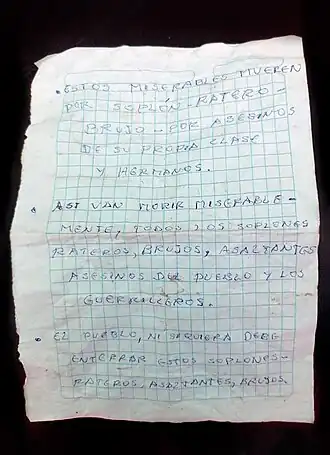 • ESTOS MISERABLES MUEREN
POR SOPLÓN-RATERO-
BRUJO-POR ASESINOS
DE SU PROPIA CLASE
Y HERMANOS.
• ASI VAN MORIR MISERABLE-
MENTE, TODOS LOS SOPLONES
RATEROS, BRUJOS, ASALTANTES
ASESINOS DEL PUEBLO Y LOS
GUERRILLEROS.
• EL PUEBLO, NI SIQUIERA DEBE
ENTERRAR ESTOS SOPLONES-
RATEROS, ASALTANTES, BRUJOS.